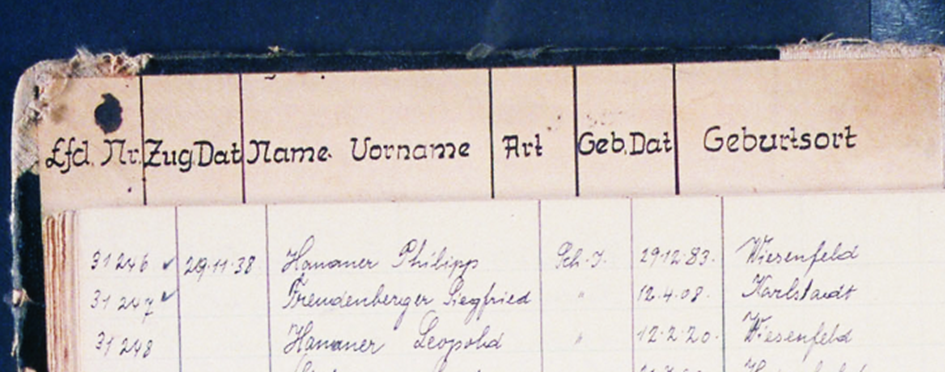 Lfd. Nr. Zug.Dat Name. Vorname Art Geb.Dat Geburtsort
31246 ✓ 29.11.38 Hanauer Philipp Sch.J. 29.12.83. Wiesenfeld
31247 ✓ Freudenberger Siegfried " 12.4.08. Karlstadt
31248 Hanauer Leopold " 12.2.20. Wiesenfeld